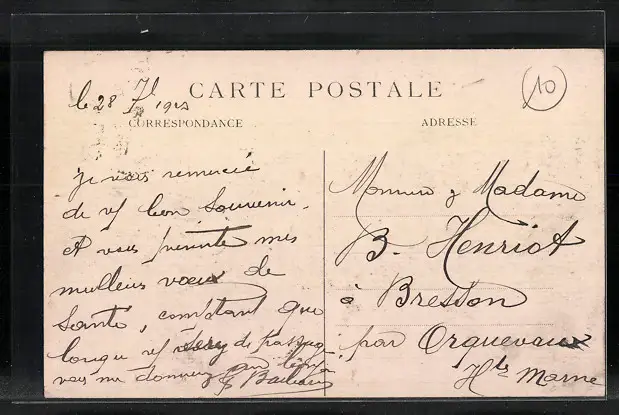 le 28
CARTE POSTALE
10
CORRESPONDANCE
ADRESSE
je vous remercie
de vf bon Souvenir.
et vous presente mes
meilleurs vœux de
Santé, comptant que
vous me donnerez
Monsieur & Madame
B. Henriot
à Bresson
par Orquevaux
Hte Marne